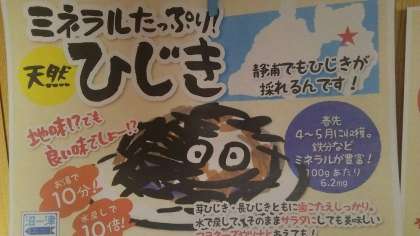 ミネラルたっぷり!
天然
ひじき
静浦でもひじきが
採れるんです!
地味!?でも
良い味でしょー!?
春先
4~5月に収穫。
鉄分など
ミネラルが豊富!
100gあたり
6.2mg
お湯で
10分!
水戻しで
10倍!
芽ひじき・長ひじきともに歯ごたえしっかり。
水で戻して、そのままサラダにしても美味しい